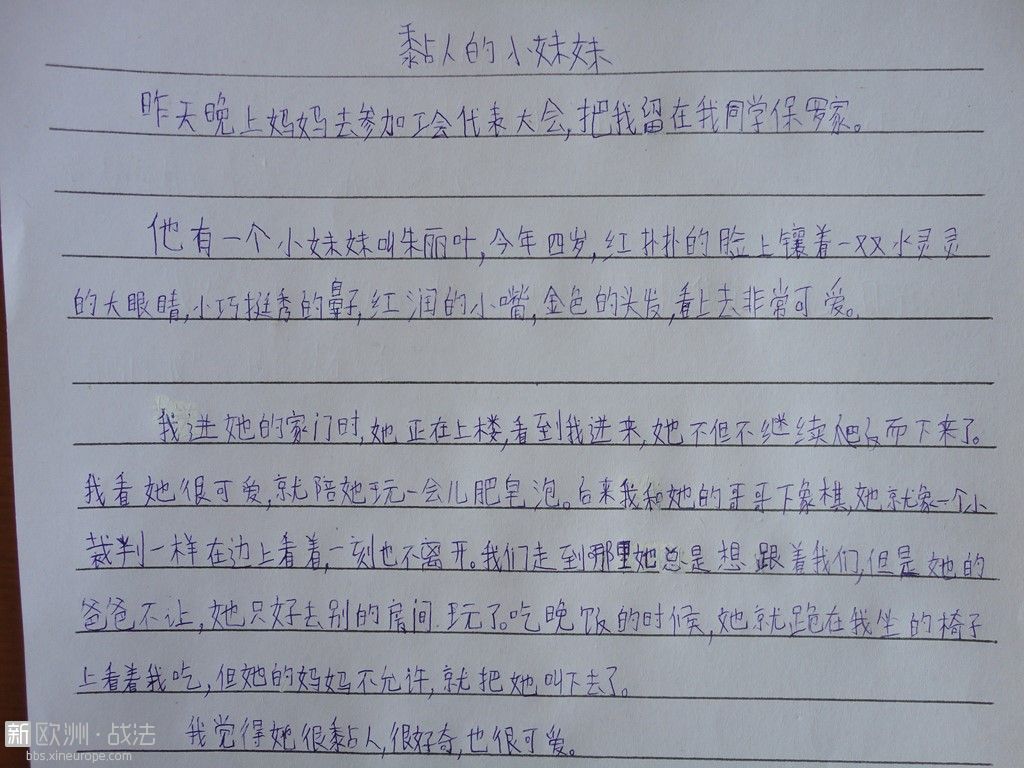 黏人的小妹妹
昨天晚上妈妈去参加工会代表大会,把我留在我同学保罗家。
他有一个小妹妹叫朱丽叶,今年四岁,红扑扑的脸上镶着一双水灵灵
的大眼睛,小巧挺秀的鼻子,红润的小嘴,金色的头发,看上去非常可爱。
我进她的家门时,她正在上楼,看到我进来,她不但不继续爬反而下来了。
我看她很可爱,就陪她玩一会儿肥皂泡。后来我和她的哥哥下象棋,她就象一个小
裁判一样在边上看着,一刻也不离开。我们走到哪里她总是想跟着我们,但是她的
爸爸不让,她只好去别的房间玩了。吃晚饭的时候,她就跪在我坐的椅子
上看着我吃,但她的妈妈不允许,就把她叫下去了。
我觉得她很黏人,很好奇,也很可爱。
新欧洲·战法
bbs.xineurope.com